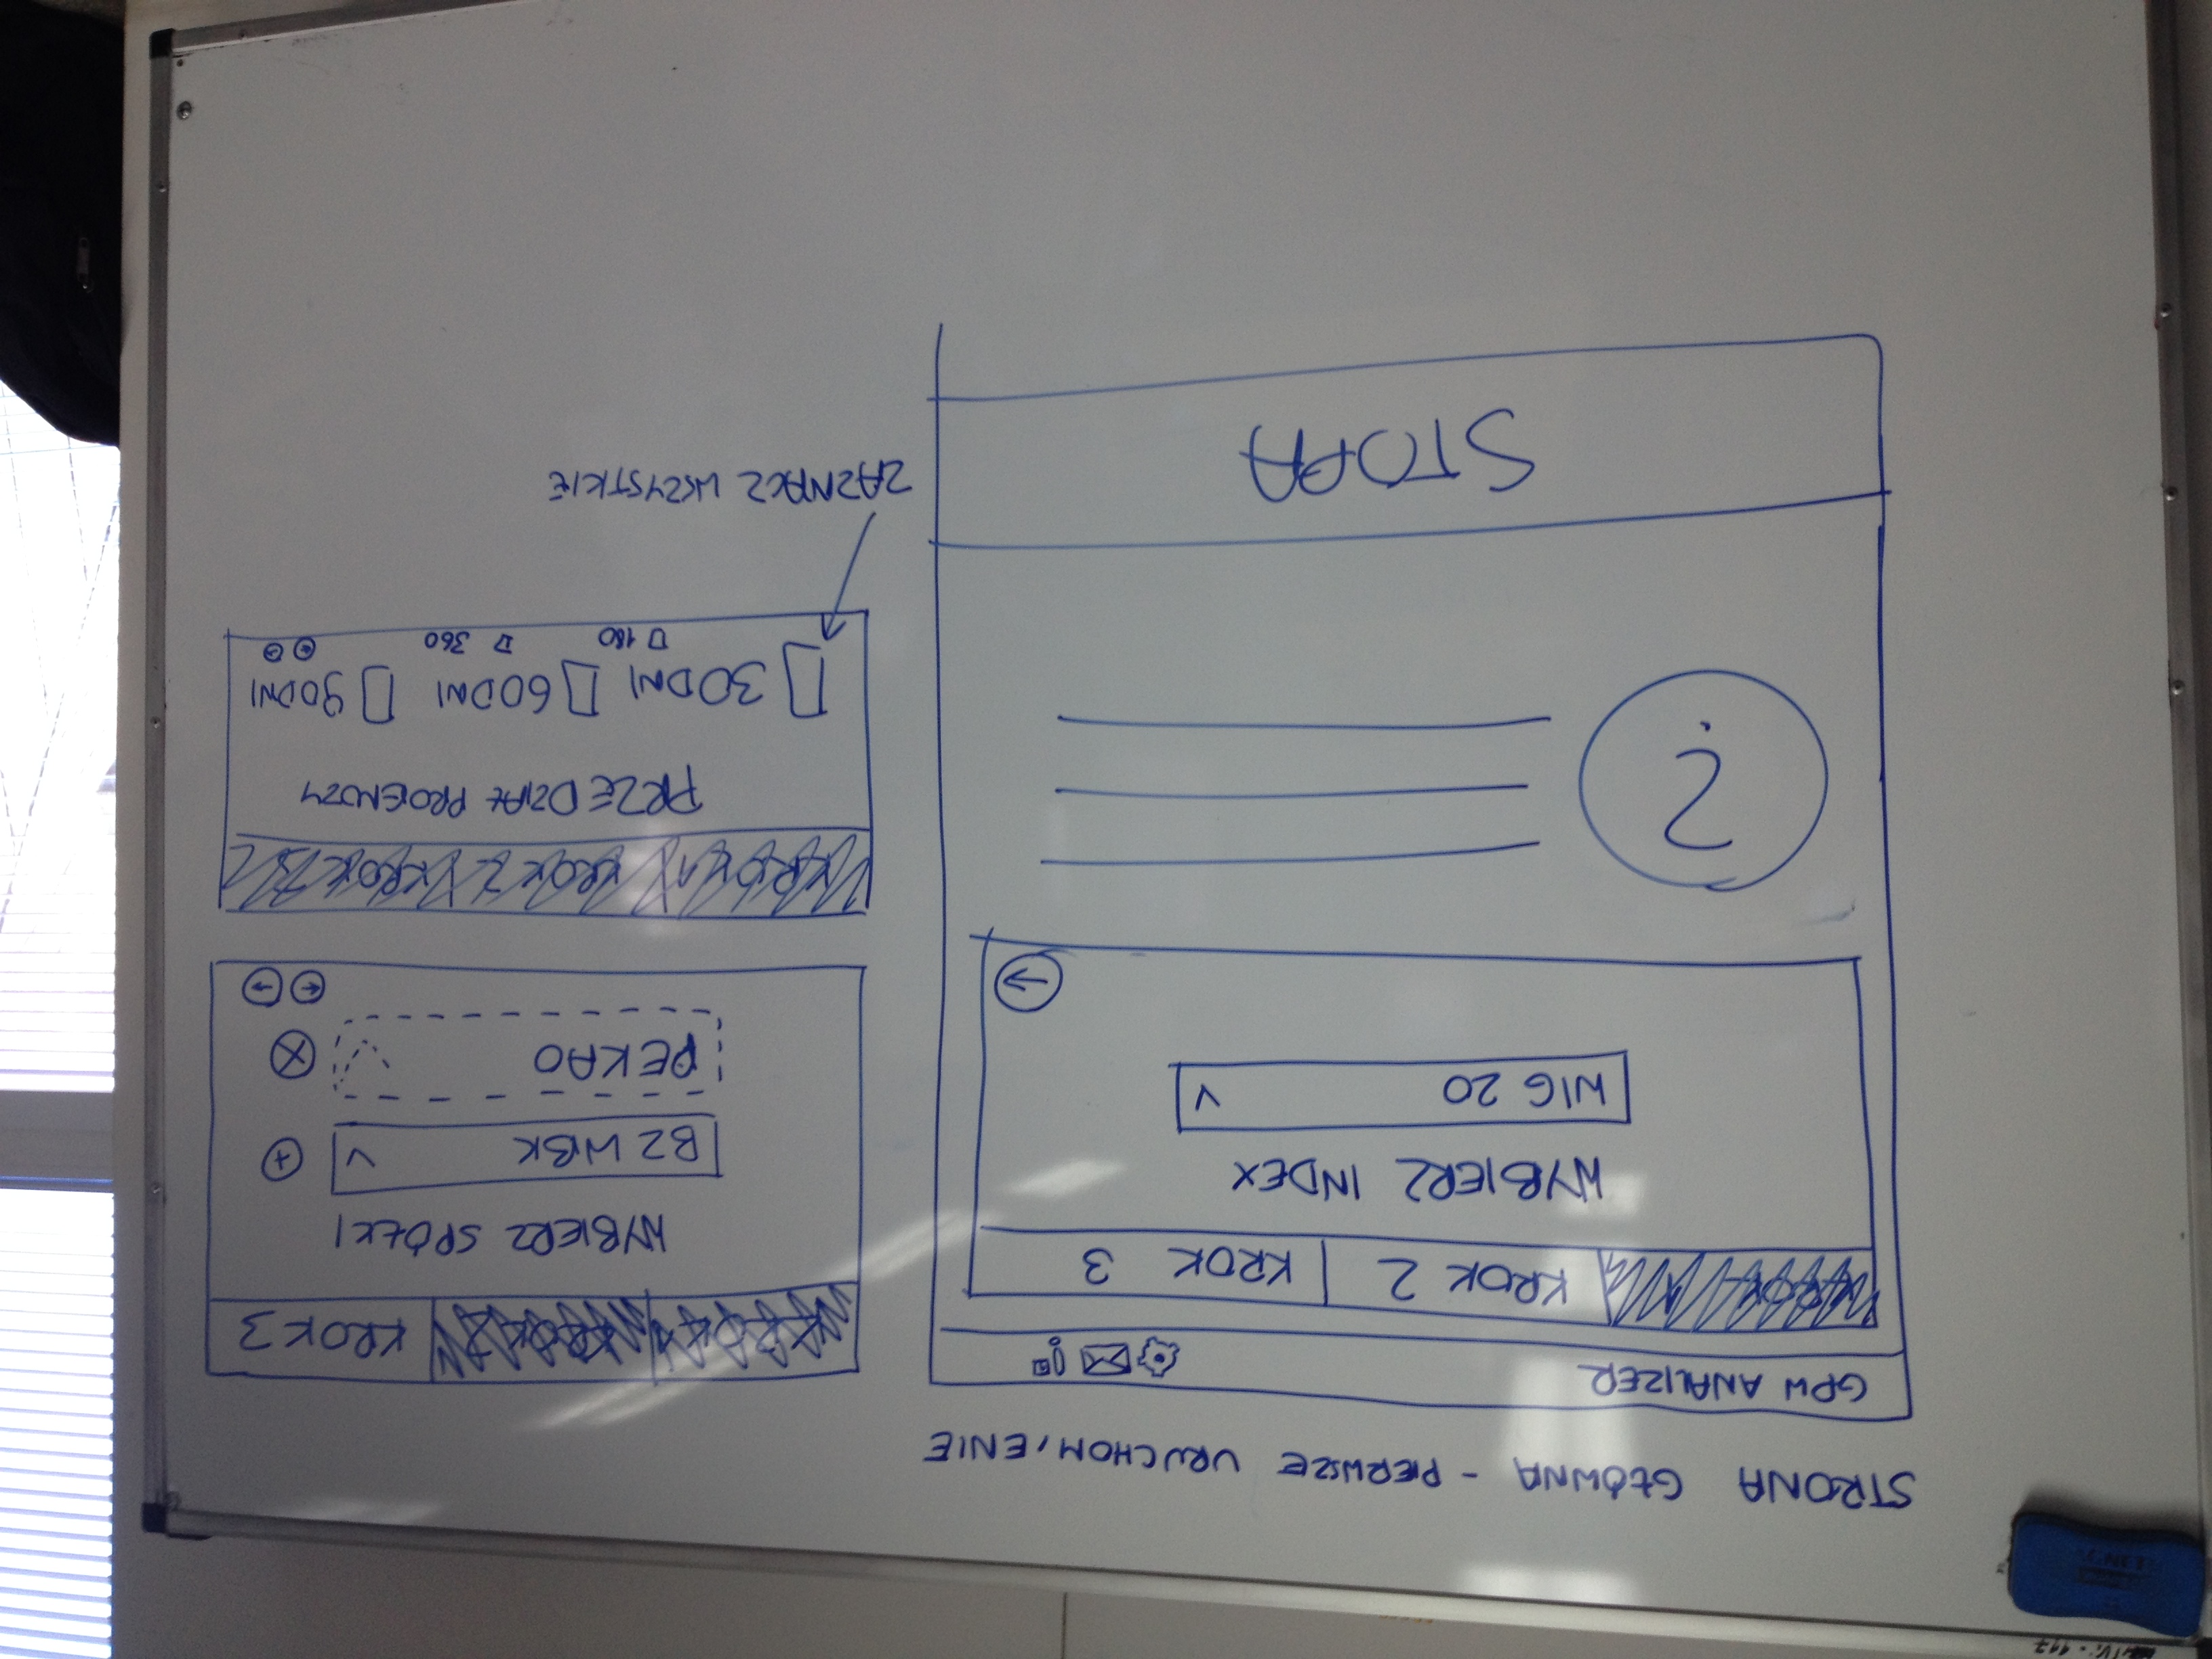 STRONA GŁÓWNA - PIERWSZE URUCHOMIENIE
GPW ANALIZER
KROK 1 KROK 2 KROK 3
WYBIERZ INDEX
WIG 20
?
STOPA
KROK 1 KROK 2 KROK 3
WYBIERZ SPÓŁKI
BZ WBK
PEKAO
KROK 1 KROK 2 KROK 3
PRZEDZIAŁ PROGNOZY
30 DNI 60 DNI 90 DNI
180 360
ZAZNACZ WSZYSTKIE